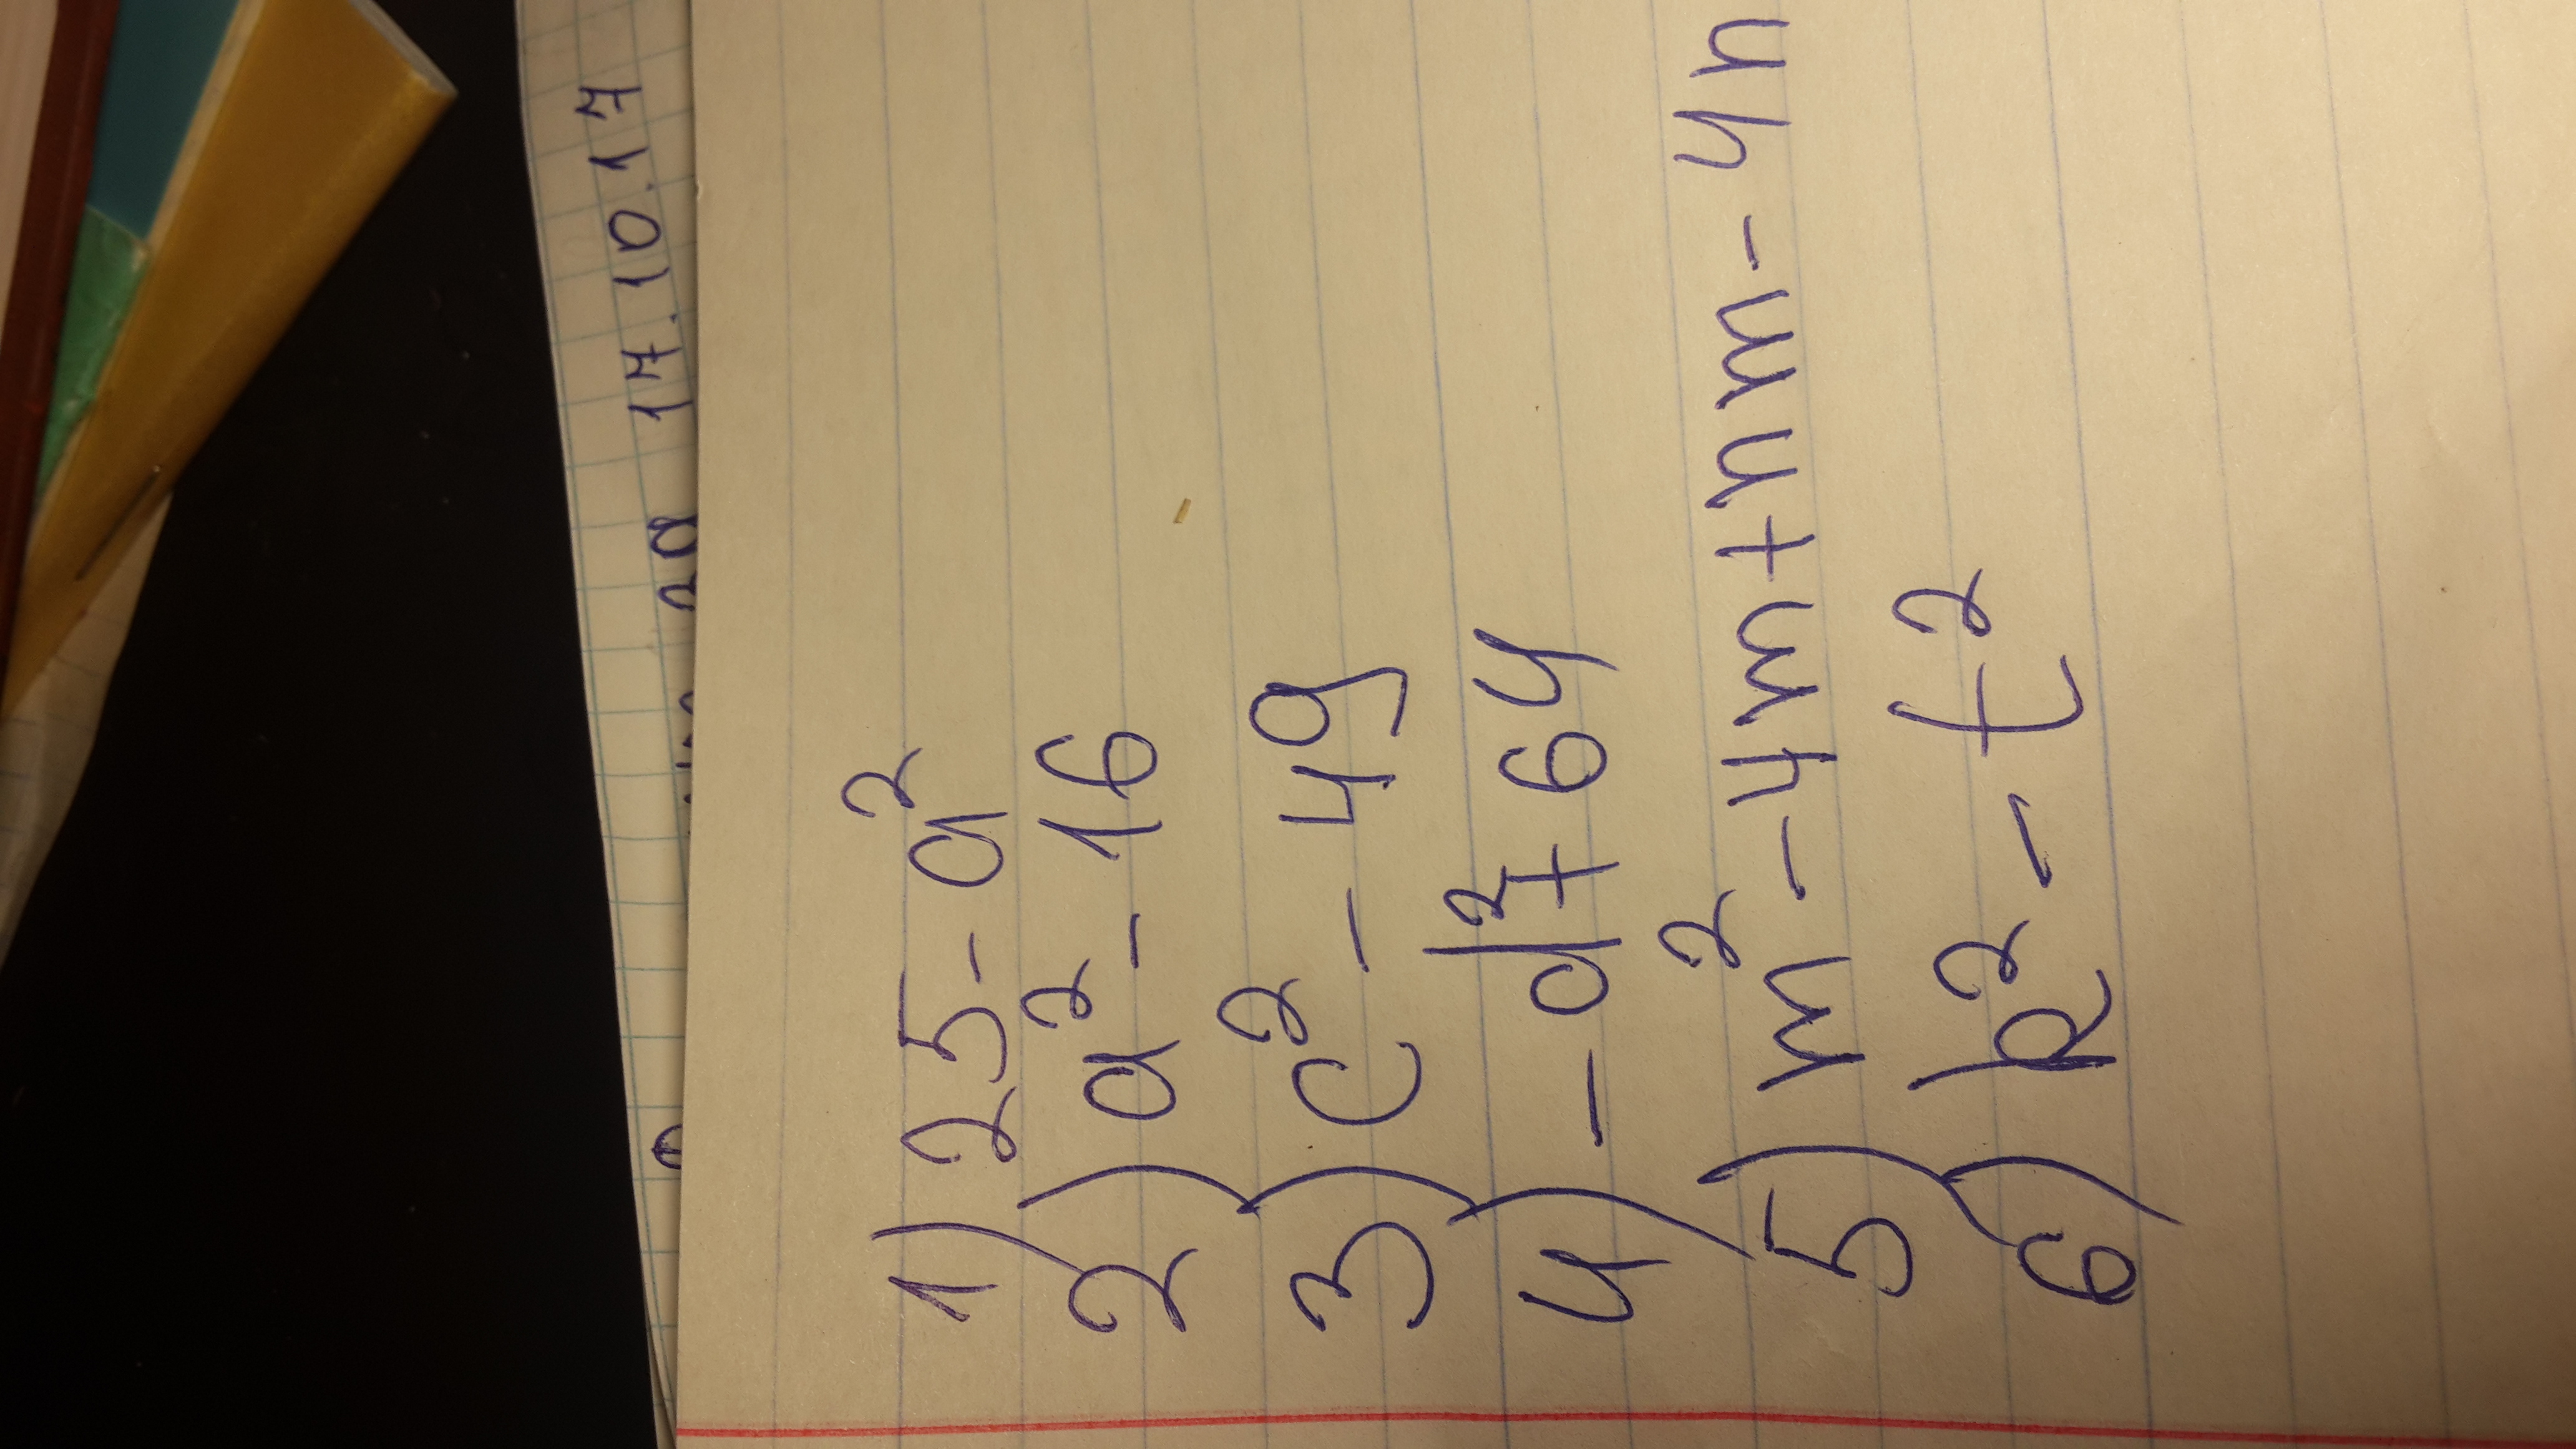 17.10.17
1) 25 - a²
2) a² - 16
3) c² - 49
4) - d² + 64
5) m² - 4m + nm - 4n
6) k² - t²